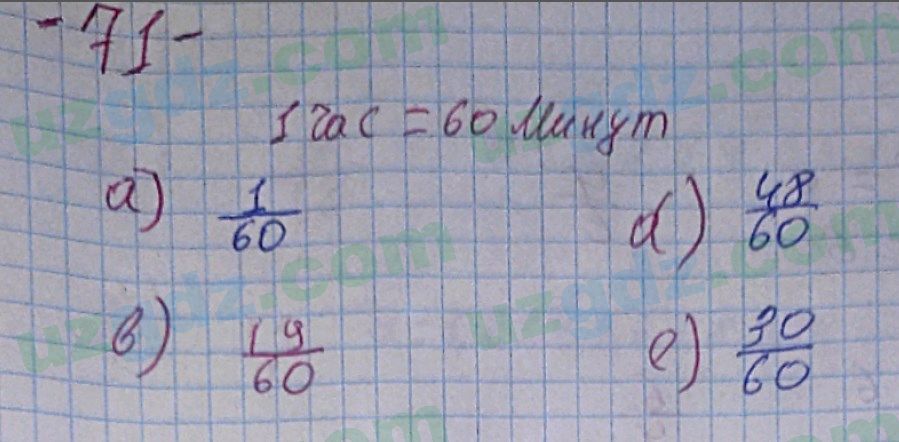 -71-
1 час = 60 минут
а) 1/60 d) 48/60
в) 19/60 е) 30/60
uzgdz.com